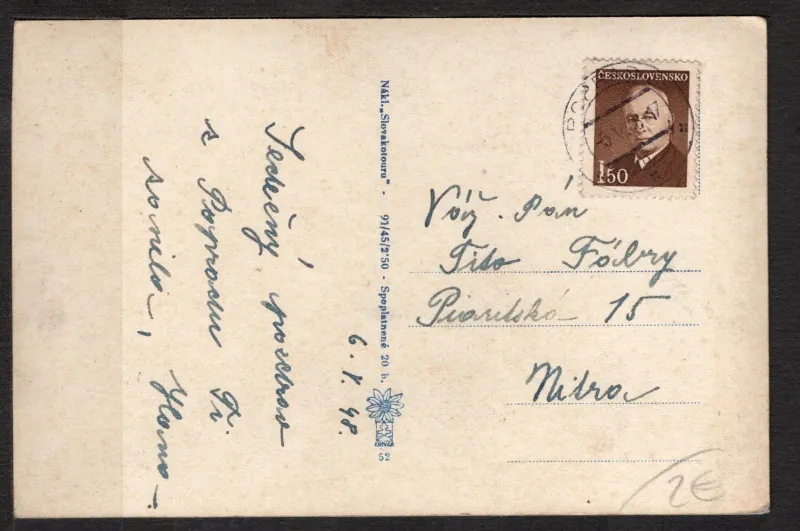 Srdečný pozdrav
s Popradu Ti
6.V.48.
Nákl. „Slovakotouru" - 91/45/2'50 - Spoplatnené 20 h.
52
ČESKOSLOVENSKO
1.50
Váž. Pán
Tito Fábry
Piaristská 15
Nitra
2€